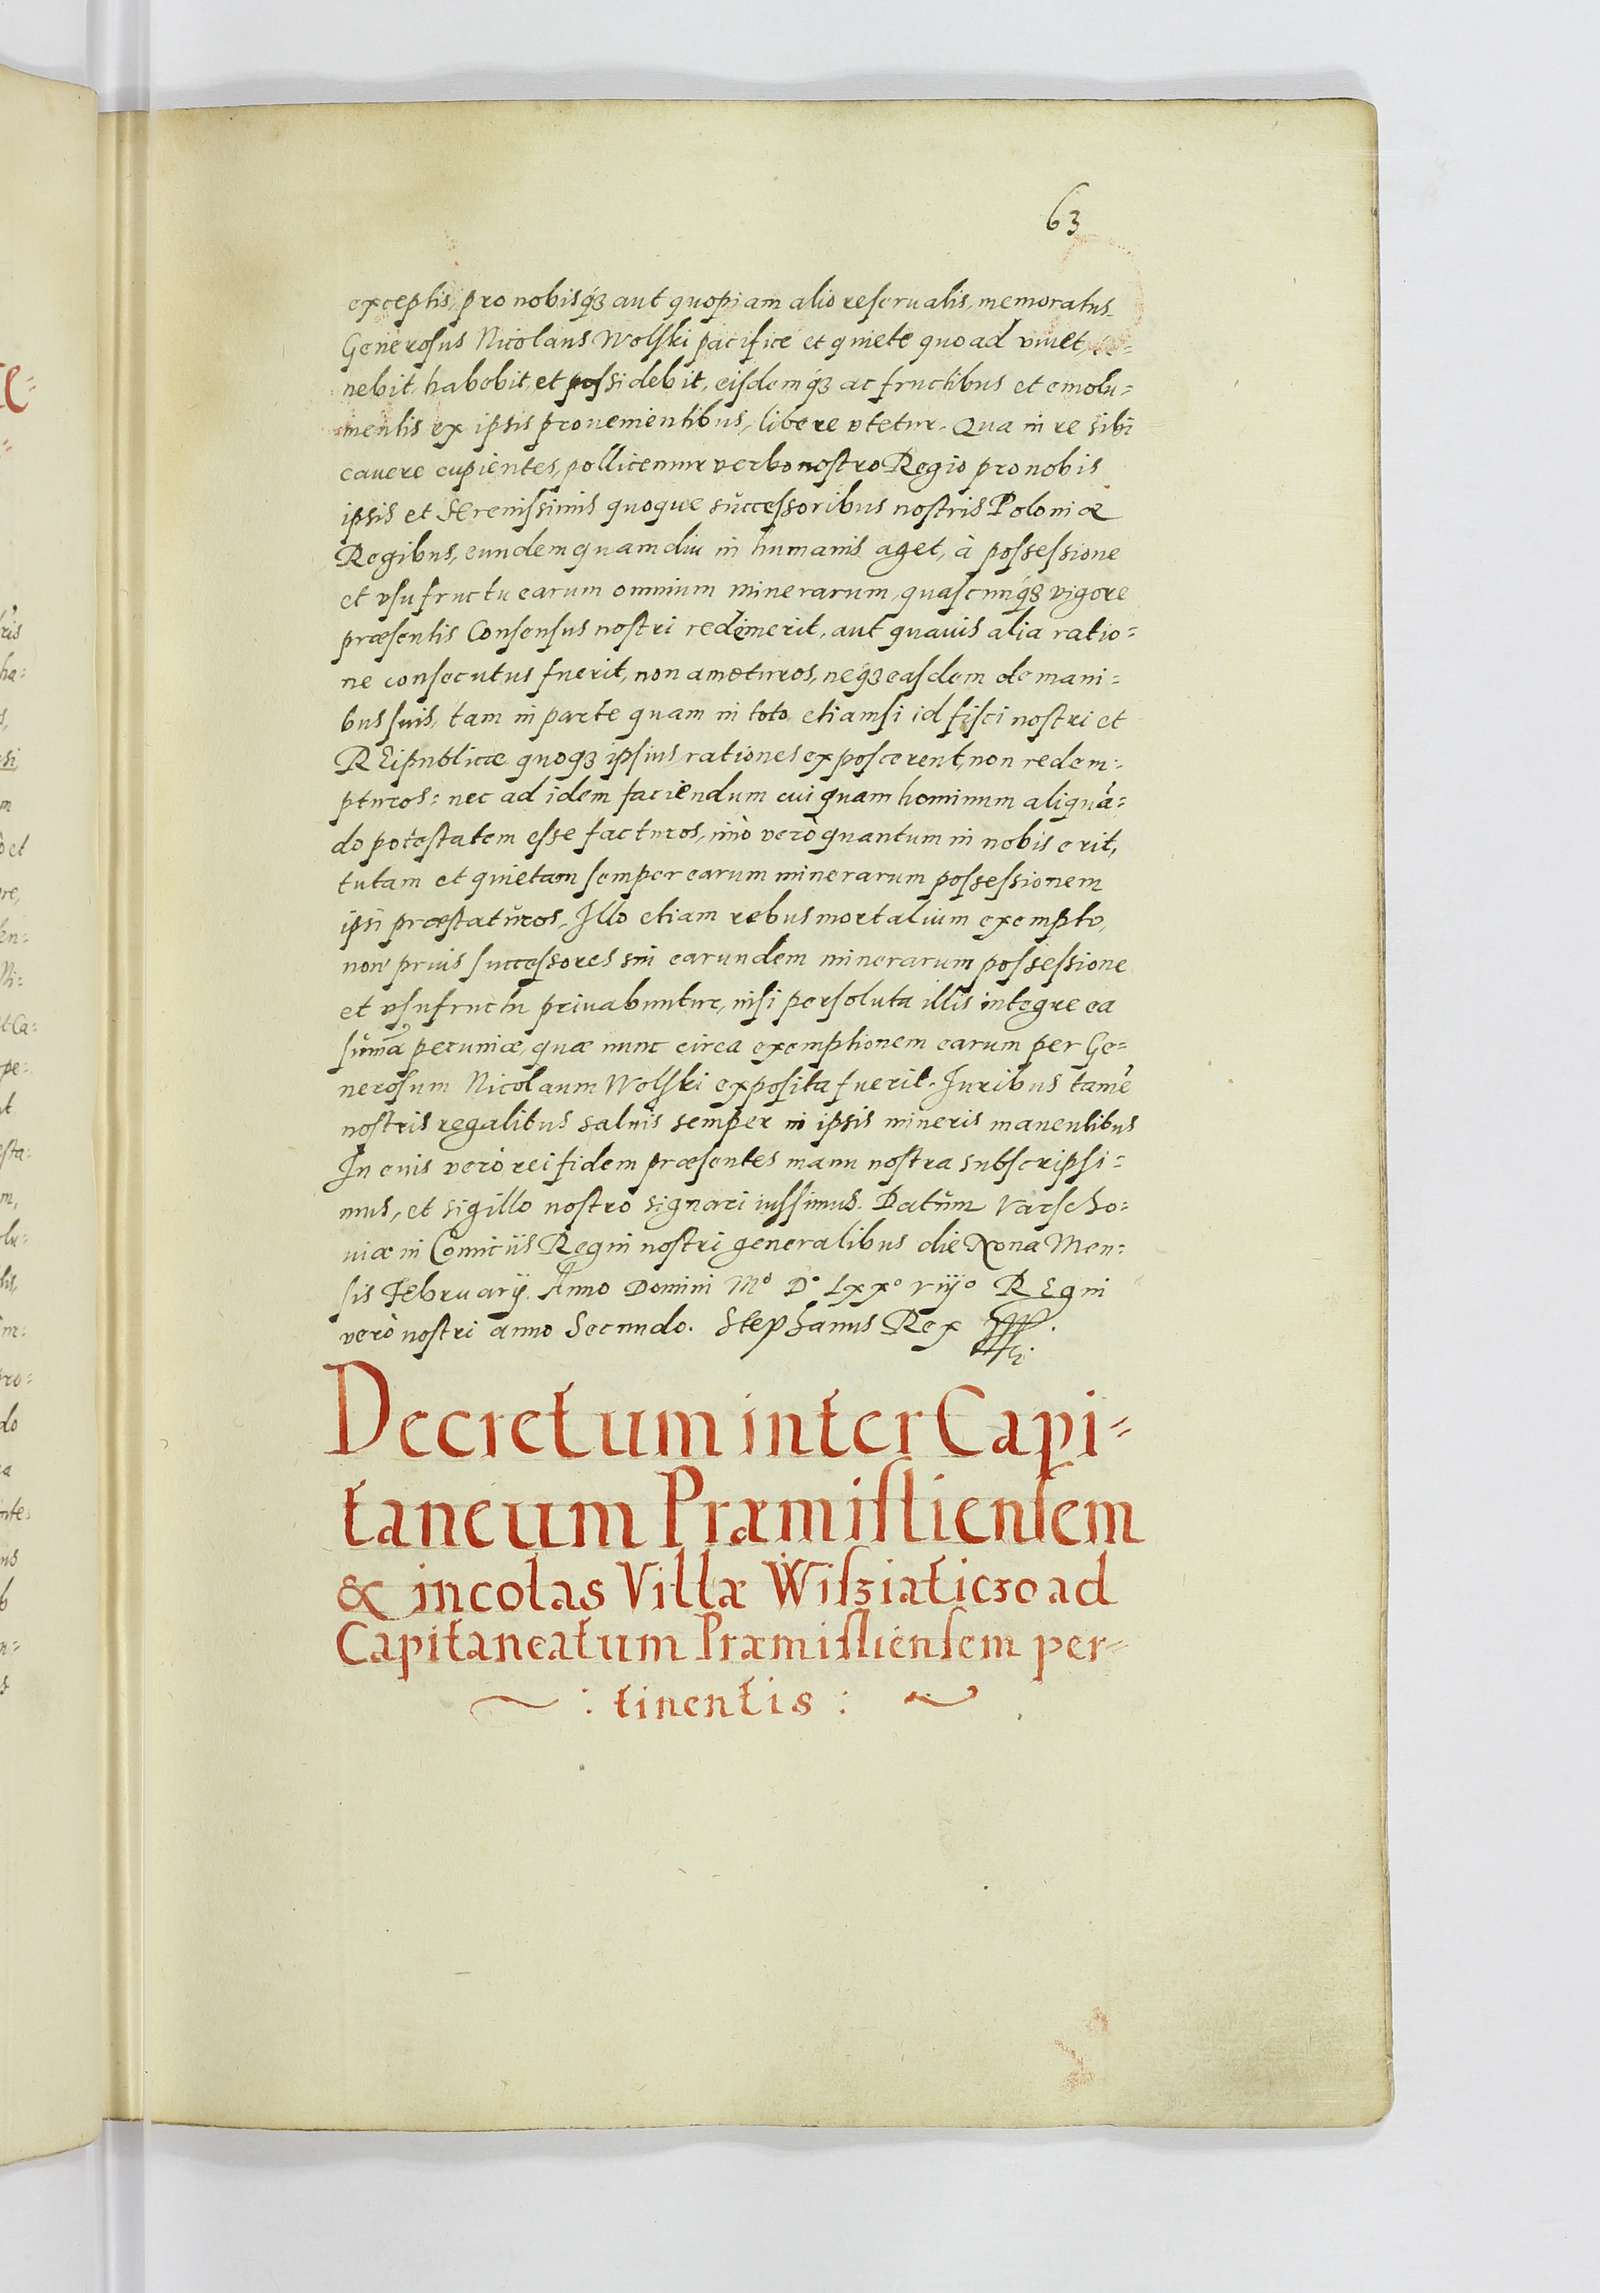 63
exceptis, pro nobisq́ꝫ aut quopiam alio reseruatis, memoratus
Generosus Nicolaus Wolski pacifice et quiete quoad viuet, te=
nebit, habebit, et possidebit, eisdemq́ꝫ ac fructibus et emolu=
mentis ex ipsis prouenientibus, libere vtetur. Qua in re sibi
cauere cupientes, pollicemur verbo nostro Regio pro nobis
ipsis et Serenissimis quoque successoribus nostris Poloniæ
Regibus, eundem quamdiu in humanis aget, à possessione
et vsufructu earum omnium minerarum, quascunq́ꝫ vigore
præsentis Consensus nostri redemerit, aut quauis alia ratio=
ne consecutus fuerit, non amoturos, neq́ꝫ easdem de mani=
bus suis, tam in parte quam in toto, etiamsi id fisci nostri et
REipublicæ quoqꝫ ipsius rationes exposcerent, non redem=
pturos: nec ad idem faciendum cuiquam hominum aliquā=
do potestatem esse facturos, imò verò quantum in nobis erit,
tutam et quietam semper earum minerarum possessionem
ipsi præstaturos. Illo etiam rebus mortalium exempto,
non prius successores sui earundem minerarum possessione
et vsufructu priuabuntur, nisi persoluta illis integre ea
sum̃a pecuniæ, quæ nunc circa exemptionem earum per Ge=
nerosum Nicolaum Wolski exposita fuerit. Iuribus tamē
nostris regalibus saluis semper in ipsis mineris manentibus
In cuius verò rei fidem præsentes manu nostra subscripsi=
mus, et sigillo nostro signari iussimus. Datum Varscho=
uiæ in Comitiis Regni nostri generalibus die Nona Men=
sis Februarÿ. Anno Domini Mº Dº Lxxº viijº REgni
verò nostri anno Secundo. Stephanus Rex
Decretum inter Capi=
taneum Præmisliensem
& incolas Villæ Wisziaticze ad
Capitaneatum Præmisliensem per=
: tinentis :